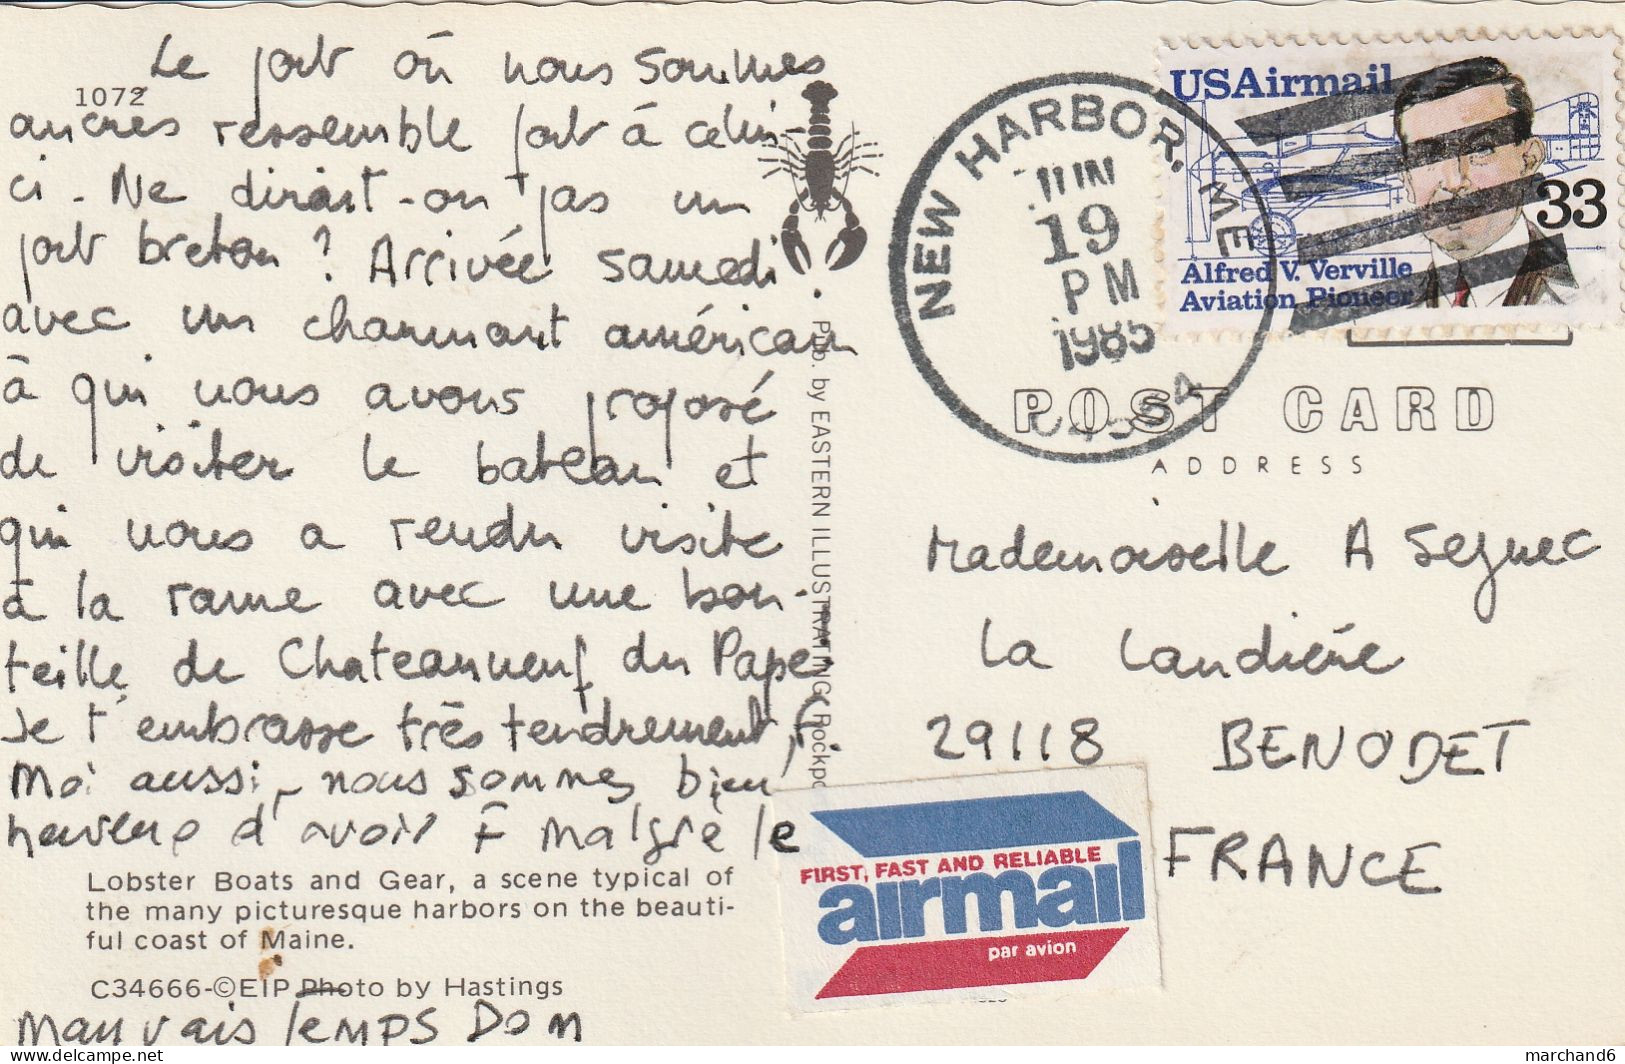 1072
Le port où nous sommes
ancrés ressemble fort à celui-
ci. Ne dirait-on pas un
port breton ? Arrivée samedi
avec un charmant américain
à qui nous avons proposé
de visiter le bateau et
qui nous a rendu visite
à la rame avec une bou-
teille de Chateauneuf du Pape
Je t'embrasse très tendrement, F.
Moi aussi, nous sommes bien
d'avoir F malgré le
Lobster Boats and Gear, a scene typical of
the many picturesque harbors on the beauti-
ful coast of Maine.
C34666-©EIP Photo by Hastings
Mauvais Temps Dom
Pub. by EASTERN ILLUSTRATING, Rockpo
NEW HARBOR, ME
JUN
19
PM
1985
04554
USAirmail
33
Alfred V. Verville
Aviation Pioneer
POST CARD
ADDRESS
Mademoiselle A Segnec
La Landière
29118 BENODET
FRANCE
FIRST, FAST AND RELIABLE
airmail
par avion
marchand6
delcampe.net